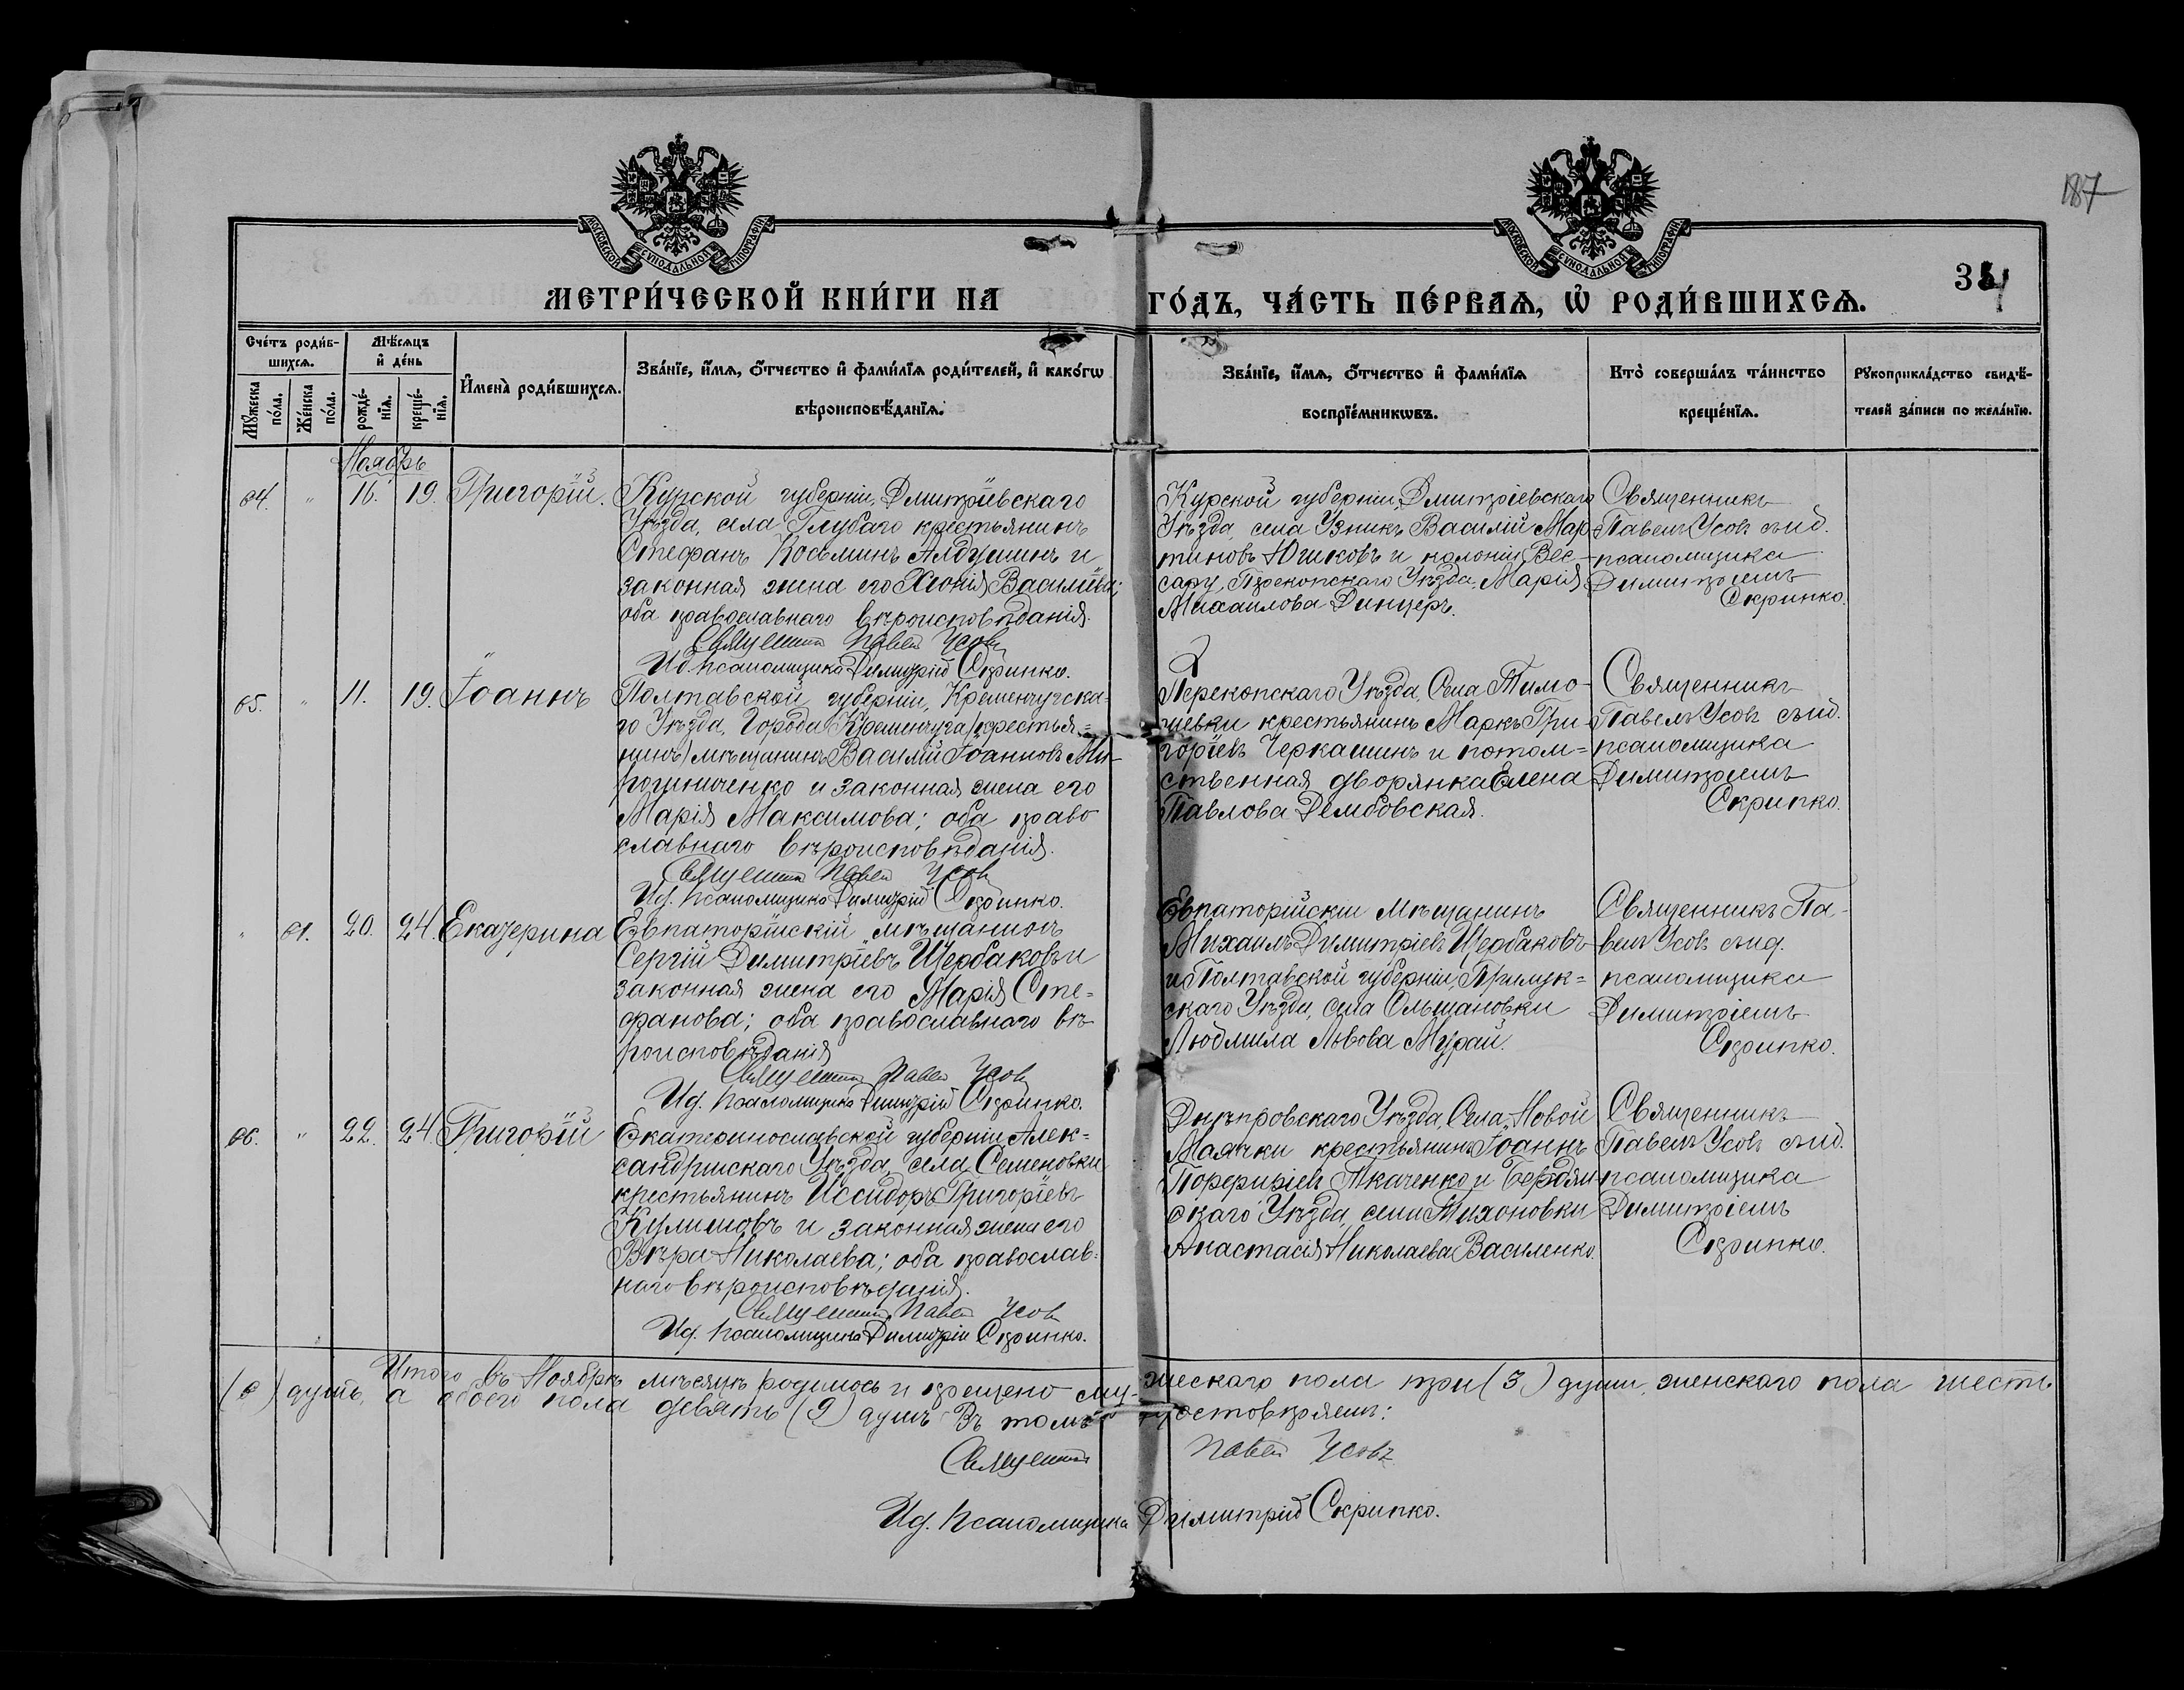 187
МОСКОВСКОЙ СѴНОДАЛЬНОЙ ТИПОГРАФІИ
МОСКОВСКОЙ СѴНОДАЛЬНОЙ ТИПОГРАФІИ
МЕТРИ́ЧЕСКОЙ КНИ́ГИ НА ГО́ДЪ, ЧА́СТЬ ПЕ́РВАѦ, Ѡ РОДИ́ВШИХСѦ.
Сче́тъ роди́вшихсѧ.
Мꙋ́жеска по́ла.
Же́нска по́ла.
Мѣ́сѧцъ и҆ де́нь
рожде́нїѧ.
креще́нїѧ.
И҆мена̀ роди́вшихсѧ.
Зва́нїе, и҆́мѧ, ѻ҆́тчество и҆ фами́лїѧ роди́телей, и҆ како́гѡ
вѣроисповѣ́данїѧ.
Зва́нїе, и҆́мѧ, ѻ҆́тчество и҆ фами́лїѧ
воспрїе́мникѡвъ.
Кто̀ соверша́лъ та́инство
креще́нїѧ.
Рꙋкоприкла́дство свидѣ́-
телей за́писи по жела́нїю.
Ноябрь
64. " 16. 19. Григорій.
Курской губерніи, Дмитріевскаго
Уѣзда, села Глубаго крестьянинъ
Стефанъ Косьминъ Алдушинъ и
законная жена его Хіонія Васильева;
оба православнаго вѣроисповѣданія.
Священникъ Павелъ Усовъ
Ид. псаломщика Димитрій Скрипко.
Курской губерніи, Дмитріевскаго
Уѣзда, села Узникъ Василій Мар-
тиновъ Юшковъ и колоніи Бес-
сару, Перекопскаго Уѣзда Марія
Михаилова Динцеръ.
Священникъ
Павелъ Усовъ съ ид.
псаломщика
Димитріемъ
Скрипко.
65. " 11. 19. Іоаннъ
Полтавской губерніи, Кременчугска-
го Уѣзда, Города Кременчуга (крестья-
нинъ) мѣщанинъ Василій Іоанновъ Ми-
рошниченко и законная жена его
Марія Максимова; оба право
славнаго вѣроисповѣданія.
Священникъ Павелъ Усовъ
Ид. псаломщика Димитрій Скрипко.
Перекопскаго Уѣзда, Села Тимо-
шевки крестьянинъ Маркъ Гри-
горіевъ Черкашинъ и потом-
ственная дворянка Елена
Павлова Дембовская.
Священникъ
Павелъ Усовъ съ ид.
псаломщика
Димитріемъ
Скрипко.
" 61. 20. 24. Екатерина
Евпаторійскій мѣщанинъ
Сергій Димитріевъ Щербаковъ и
законная жена его Марія Сте-
фанова; оба православнаго вѣ-
роисповѣданія
Священникъ Павелъ Усовъ
Ид. псаломщика Димитрій Скрипко.
Евпаторійскій мѣщанинъ
Михаилъ Димитріевъ Щербаковъ
и Полтавской губерніи, Прилук-
скаго Уѣзда, села Ольшановки
Людмила Львова Мурай.
Священникъ Па-
велъ Усовъ съ ид.
псаломщика
Димитріемъ
Скрипко.
66. " 22. 24. Григорій
Екатеринославской губерніи Алек-
сандрійскаго Уѣзда, села Семеновки
крестьянинъ Исидоръ Григоріевъ
Кулишовъ и законная жена его
Вѣра Николаева; оба православ-
наго вѣроисповѣданія.
Священникъ Павелъ Усовъ
Ид. псаломщика Димитрій Скрипко.
Днѣпровскаго Уѣзда, Села Новой
Маячки крестьянинъ Іоаннъ
Порфиріевъ Ткаченко и Бердян-
скаго Уѣзда, села
Анастасія Николаева Василенко.
Священникъ
Павелъ Усовъ съ ид.
псаломщика
Димитріемъ
Скрипко.
Итого въ Ноябрѣ мѣсяцѣ родилось и крещено му-жескаго пола три (3) души, женскаго пола шесть
(6) душъ, а обоего пола девять (9) душъ Въ томъ удостовѣряемъ:
Священникъ Павелъ Усовъ
Ид. псаломщика Димитрій Скрипко.